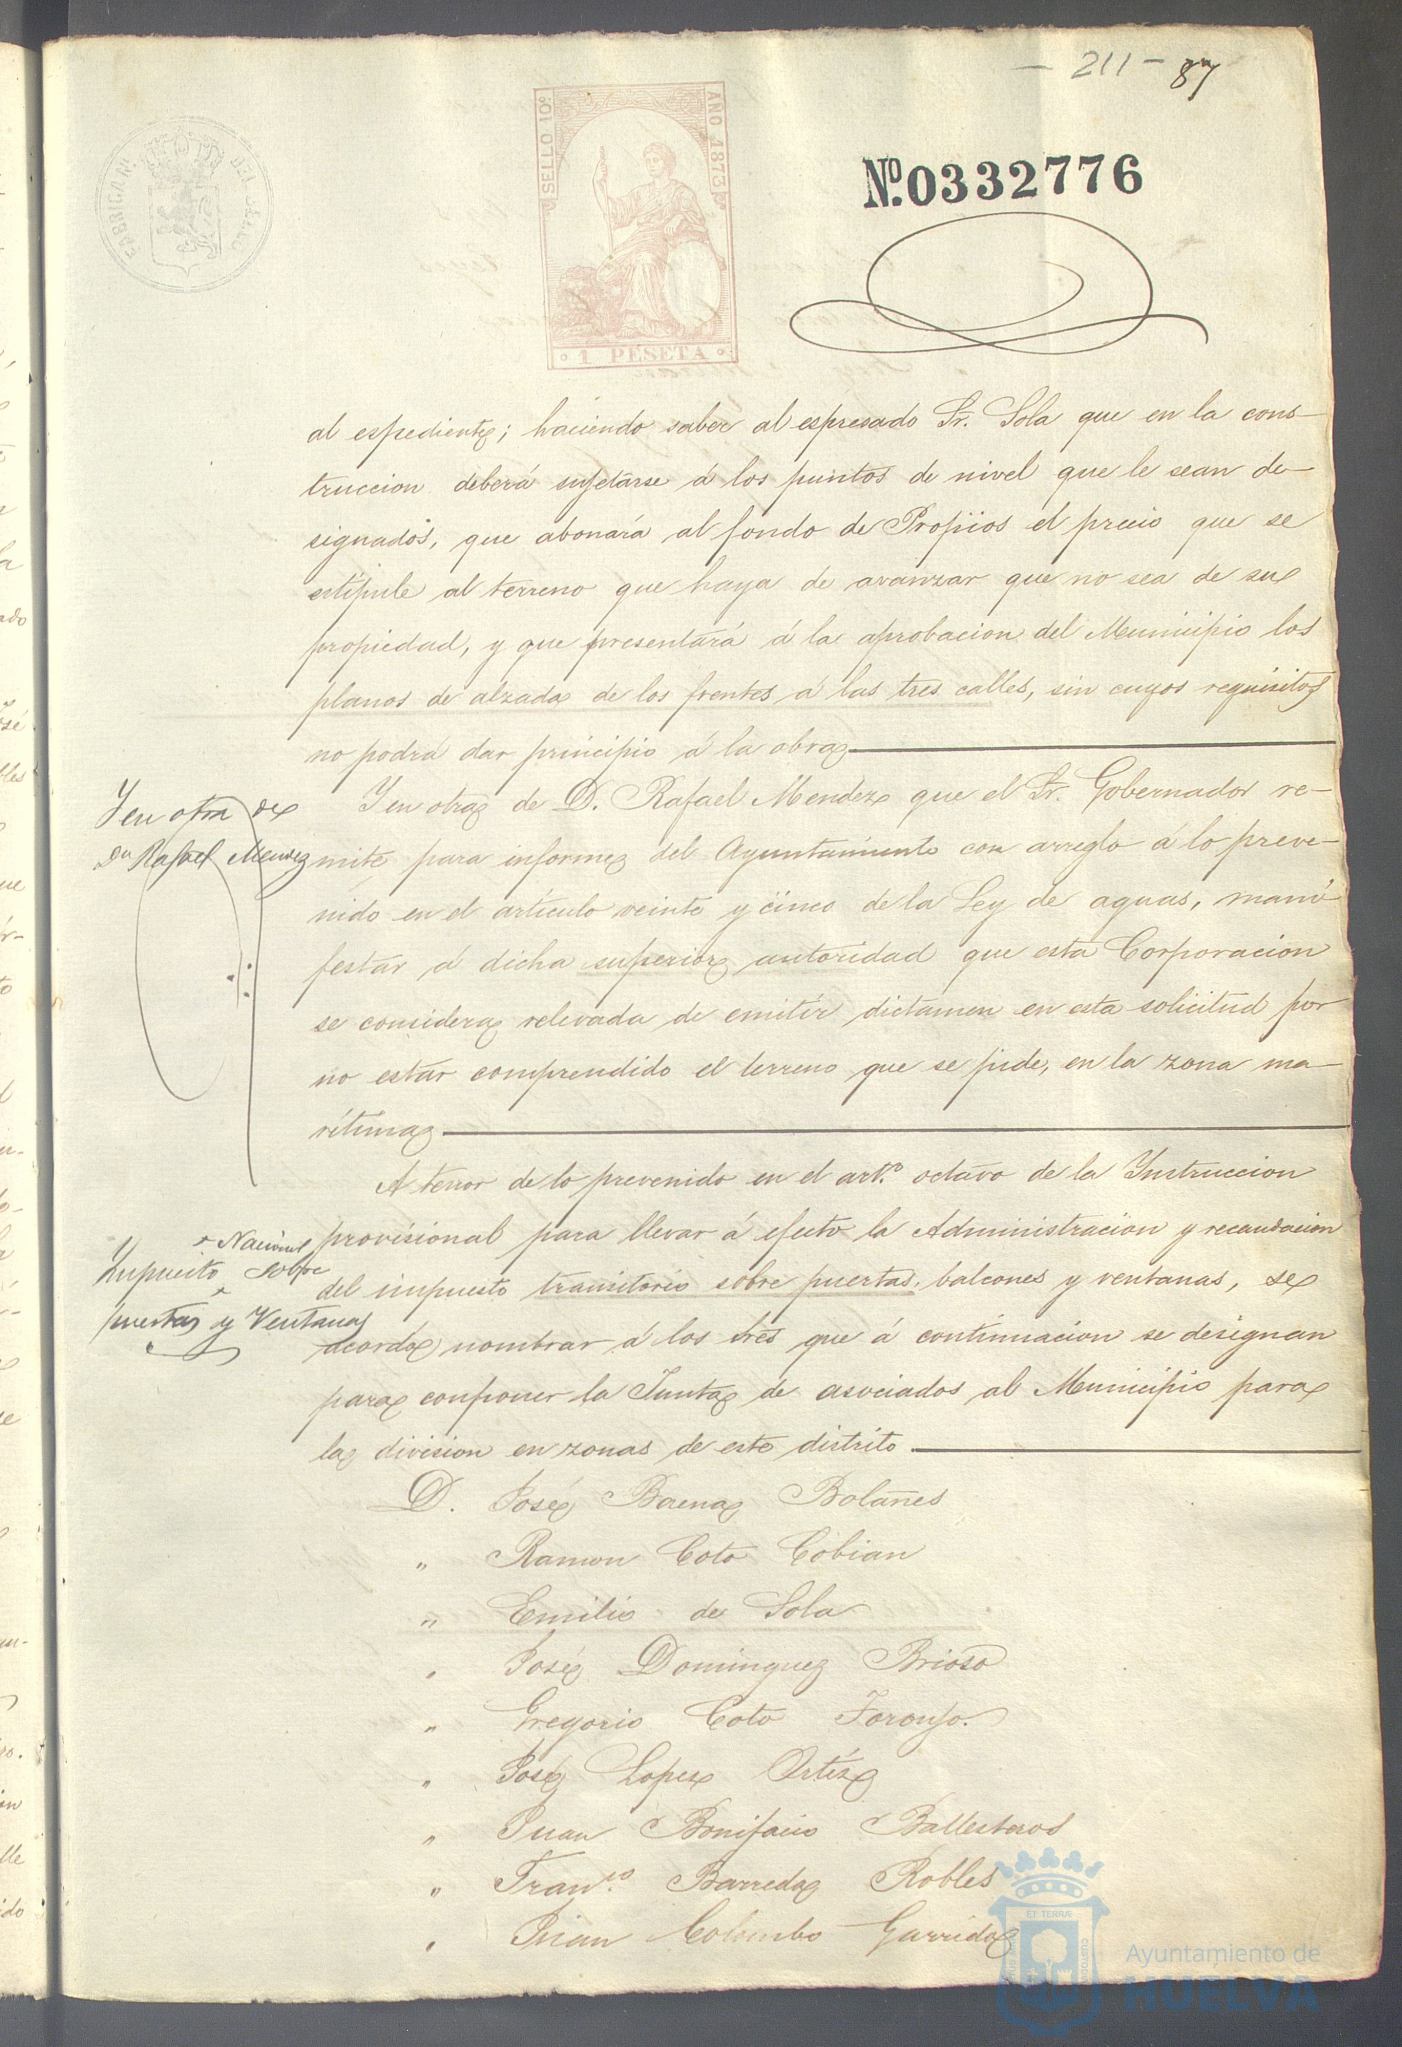 - 211 - 87
FABRICA N. DEL SELLO
SELLO 10º
AÑO 1873
1 PESETA
Nº. 0332776
al espediente; haciendo saber al espresado Sr. Sola que en la cons-
truccion deberá sujetarse á los puntos de nivel que le sean de-
signados, que abonará al fondo de Propios el precio que se
estipule al terreno que haya de avanzar que no sea de su
propiedad, y que presentará á la aprobacion del Municipio los
planos de alzada de los frentes á las tres calles, sin cuyos requisitos
no podrá dar principio á la obra
Y en otra de
Dn Rafael Mendez
Y en otra de D. Rafael Mendez que el Sr. Gobernador re-
mite para informe del Ayuntamiento con arreglo á lo preve-
nido en el artículo veinte y cinco de la Ley de aguas, mani-
festar á dicha superior autoridad que esta Corporacion
se considera relevada de emitir dictamen en esta solicitud por
no estar comprendido el terreno que se pide, en la zona ma-
rítima
A tenor de lo prevenido en el artº. octavo de la Instruccion
provisional para llevar á efecto la Administracion y recaudacion
del impuesto transitorio sobre puertas, balcones y ventanas, se
acordó nombrar á los tres que á continuacion se designan
para componer la Junta de asociados al Municipio para
la division en zonas de este distrito
Nacional
Impuesto sobre
puertas y Ventanas
D. José Baena Bolaños
" Ramon Coto Cobian
" Emilio de Sola
" José Dominguez Brioso
" Gregorio Coto Toronjo.
" José Lopez Ortíz
" Juan Bonifacio Ballesteros
" Franco. Barreda Robles
" Juan Colombo Garrido
Ayuntamiento de
HUELVA